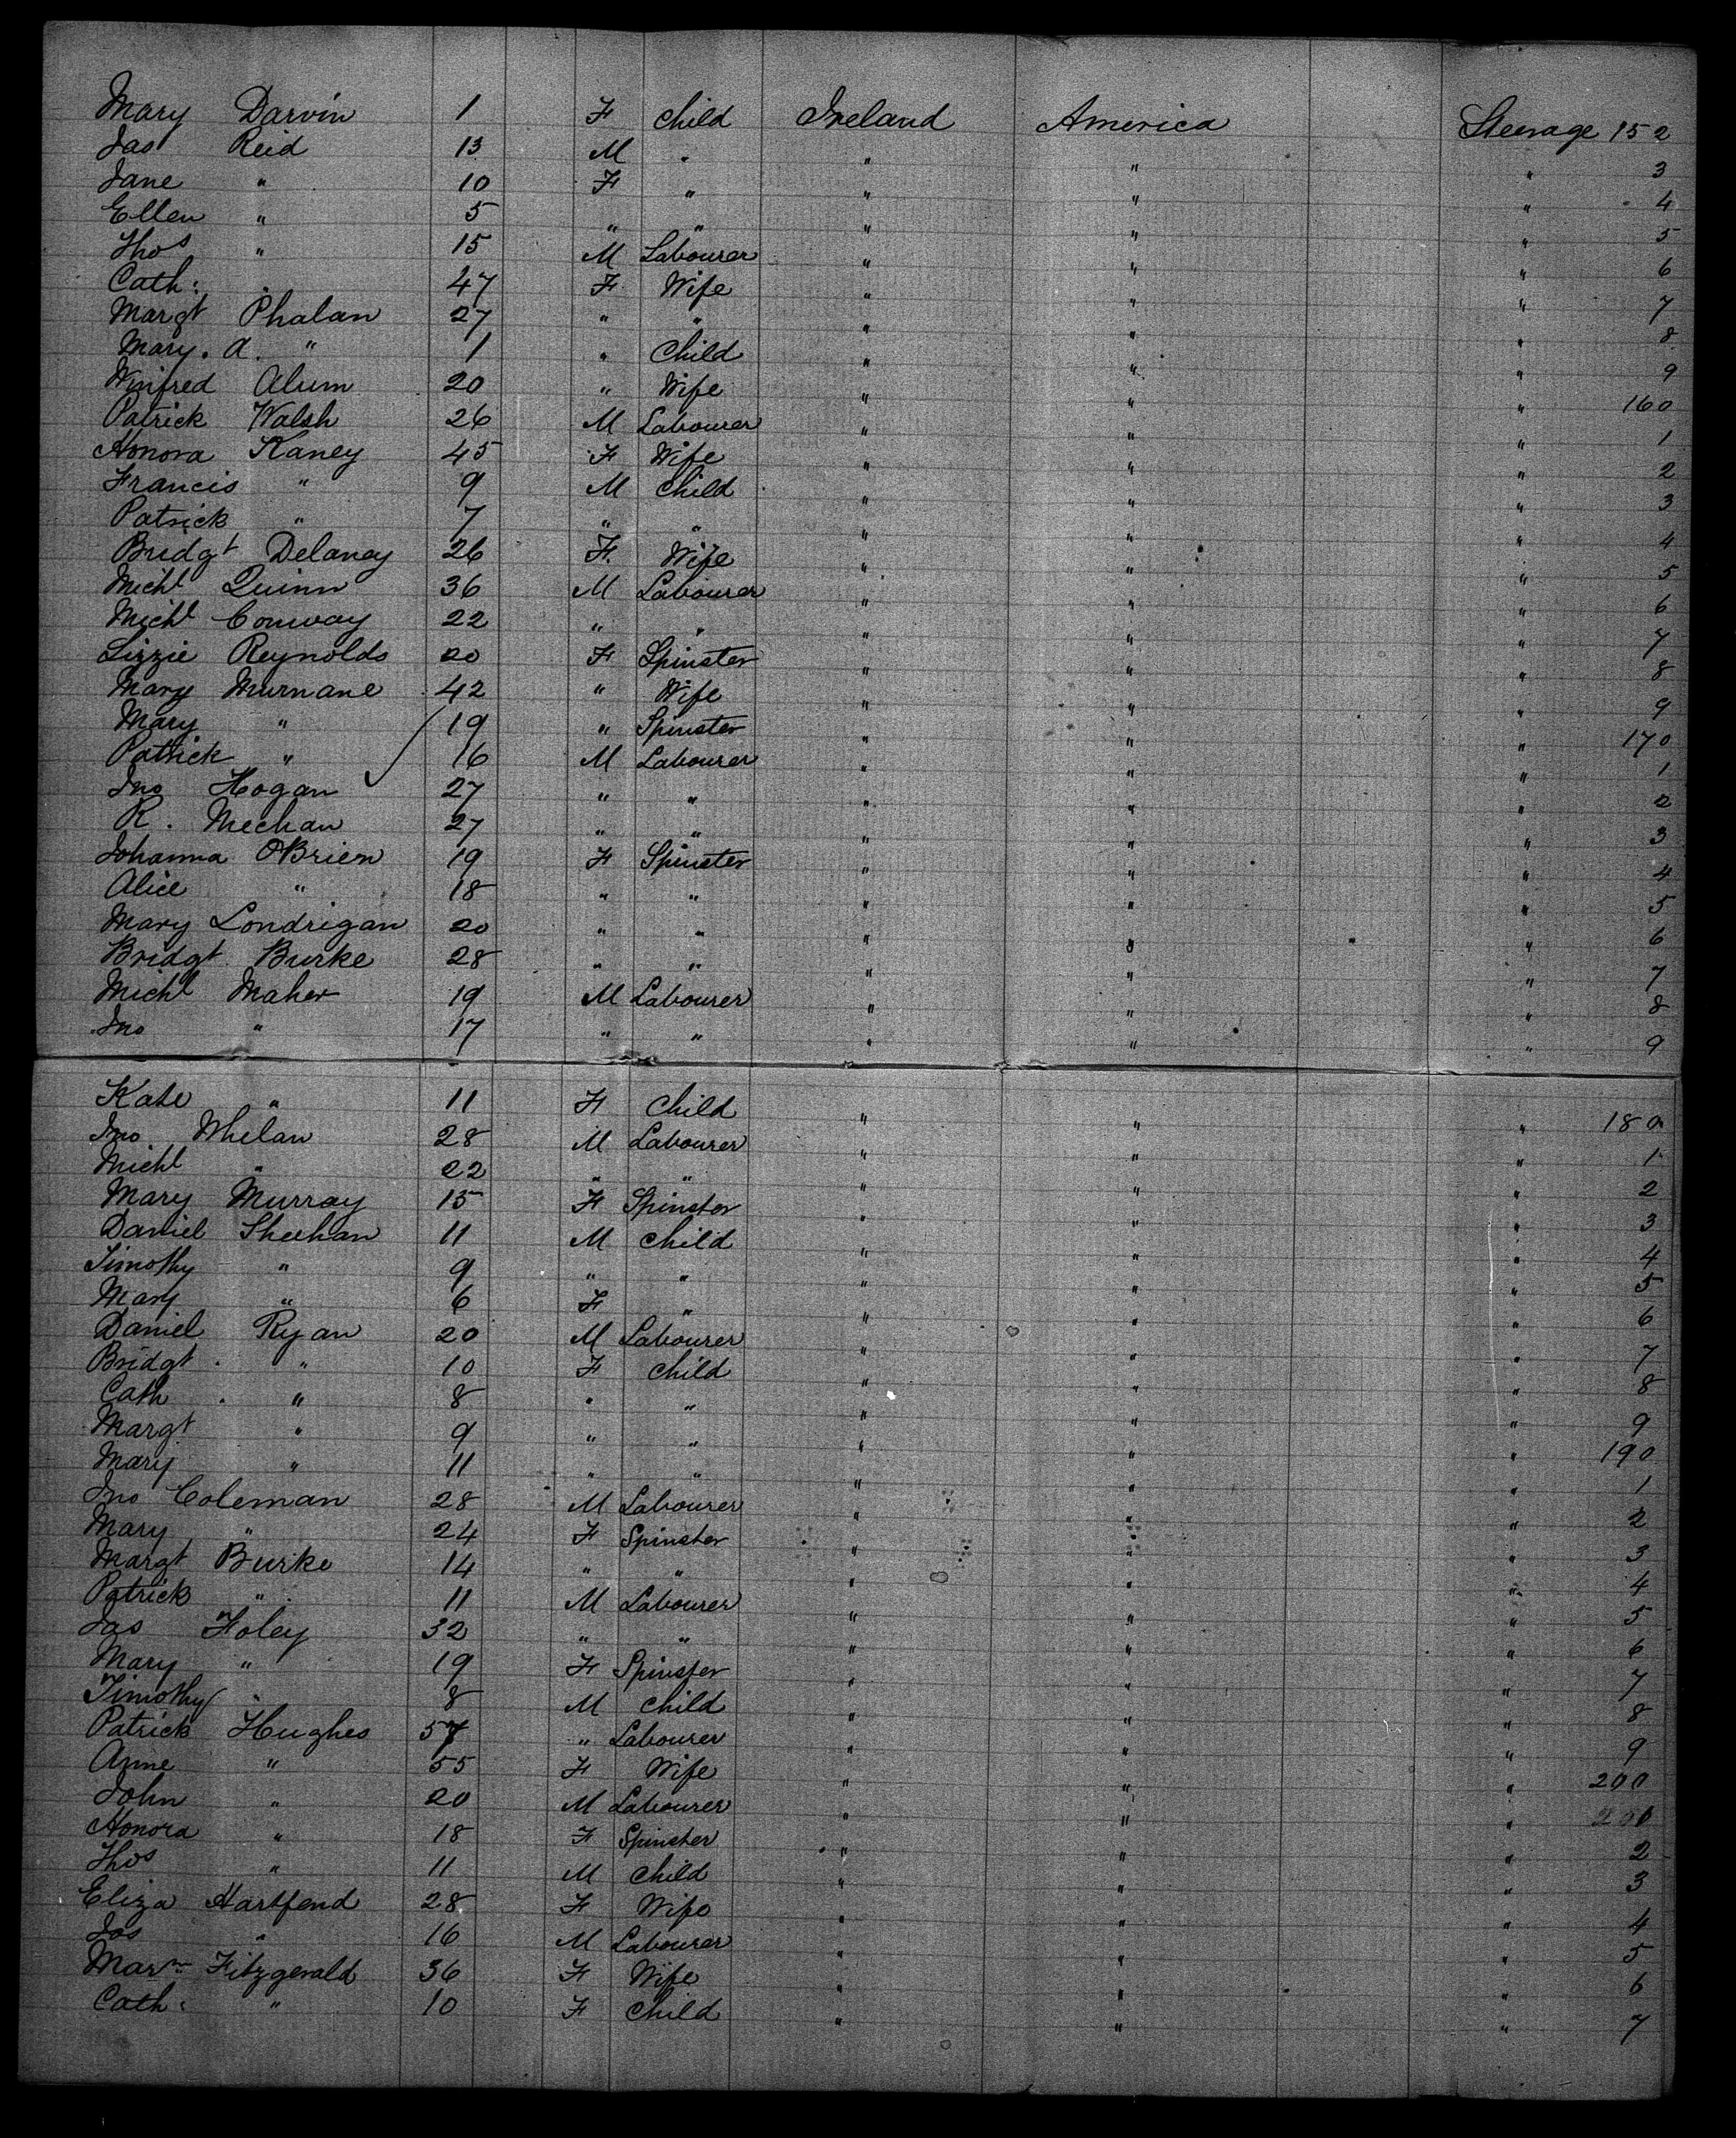 Mary Darvin 1 F Child Ireland America Steerage 152
Jas Reid 13 M " " " " 3
Jane " 10 F " " " " 4
Ellen " 5 " " " " " 5
Thos " 15 M Labourer " " " 6
Cath: " 47 F Wife " " " 7
Margt Phalan 27 " " " " " 8
Mary. A. " 1 " Child " " " 9
Winifred Alum 20 " Wife " " " 160
Patrick Walsh 26 M Labourer " " " 1
Honora Kaney 45 F Wife " " " 2
Francis " 9 M Child " " " 3
Patrick " 7 " " " " " 4
Bridgt Delaney 26 F. Wife " " " 5
Michl Quinn 36 M Labourer " " " 6
Michl Conway 22 " " " " " 7
Lizzie Reynolds 20 F Spinster " " " 8
Mary Murnane 42 " Wife " " " 9
Mary " 19 " Spinster " " " 170
Patrick " 16 M Labourer " " " 1
Jno Hogan 27 " " " " " 2
R. Mechan 27 " " " " " 3
Johanna OBrien 19 F Spinster " " " 4
Alice " 18 " " " " " 5
Mary Londrigan 20 " " " " " 6
Bridgt Burke 28 " " " " " 7
Michl Maher 19 M Labourer " " " 8
Jno " 17 " " " " " 9
Kate " 11 F Child " " " 180
Jno Whelan 28 M Labourer " " " 1
Michl " 22 " " " " " 2
Mary Murray 15 F Spinster " " " 3
Daniel Sheehan 11 M Child " " " 4
Timothy " 9 " " " " " 5
Mary " 6 F " " " " 6
Daniel Ryan 20 M Labourer " " " 7
Bridgt " 10 F Child " " " 8
Cath " 8 " " " " " 9
Margt " 9 " " " " " 190
Mary " 11 " " " " " 1
Jno Coleman 28 M Labourer " " " 2
Mary " 24 F Spinster " " " 3
Margt Burke 14 " " " " " 4
Patrick " 11 M Labourer " " " 5
Jas Foley 32 " " " " " 6
Mary " 19 F Spinster " " " 7
Timothy " 8 M Child " " " 8
Patrick Hughes 57 " Labourer " " " 9
Anne " 55 F Wife " " " 200
John " 20 M Labourer " " " 200
Honora " 18 F Spinster " " " 2
Thos " 11 M Child " " " 3
Eliza Hartfend 28 F Wife " " " 4
Jos " 16 M Labourer " " " 5
Mar Fitzgerald 36 F Wife " " " 6
Cath: " 10 F Child " " " 7